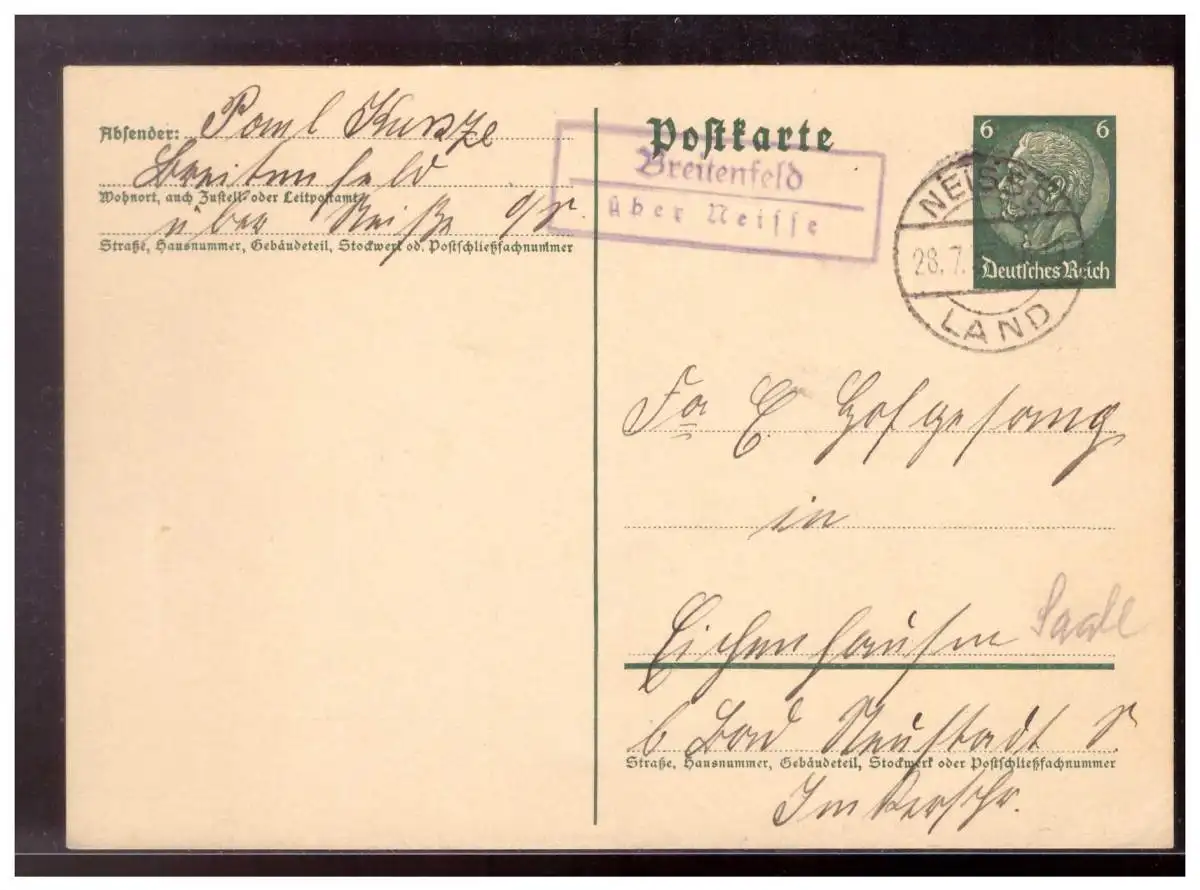 Absender: Paul Kunze
Breitenfeld
Wohnort, auch Zustell- oder Leitpostamt
über Neiße O/S.
Straße, Hausnummer, Gebäudeteil, Stockwerk od. Postschließfachnummer
Postkarte
Breitenfeld
über Neisse
6 6
Deutsches Reich
NEISSE
28.7.
LAND
Fa E. Hofgesang
in
Eichenhausen Saale
b Bad Neustadt S.
Straße, Hausnummer, Gebäudeteil, Stockwerk oder Postschließfachnummer